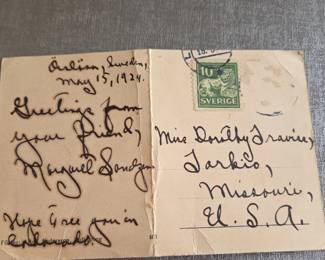 Sweden,
May 15, 1924.
Greetings from
your friend,
Margaret
Hope I see you in
10
SVERIGE
Miss Dorothy Travis,
Tarkio,
Missouri,
U. S. A.